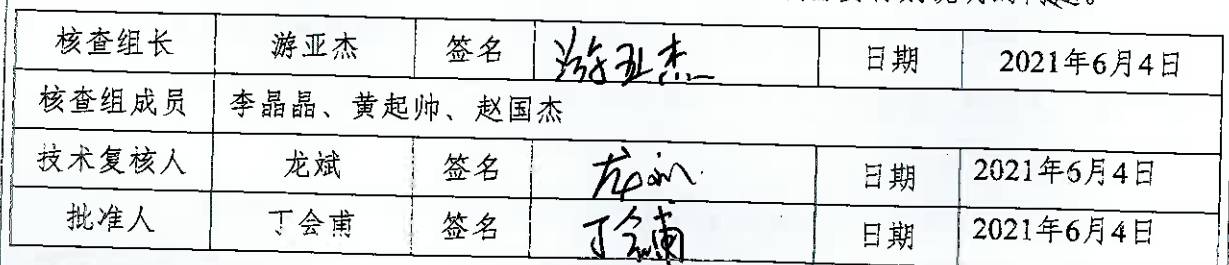 核查组长 游亚杰 签名 游亚杰 日期 2021年6月4日
核查组成员 李晶晶、黄起帅、赵国杰
技术复核人 龙斌 签名 龙斌 日期 2021年6月4日
批准人 丁会甫 签名 丁会甫 日期 2021年6月4日